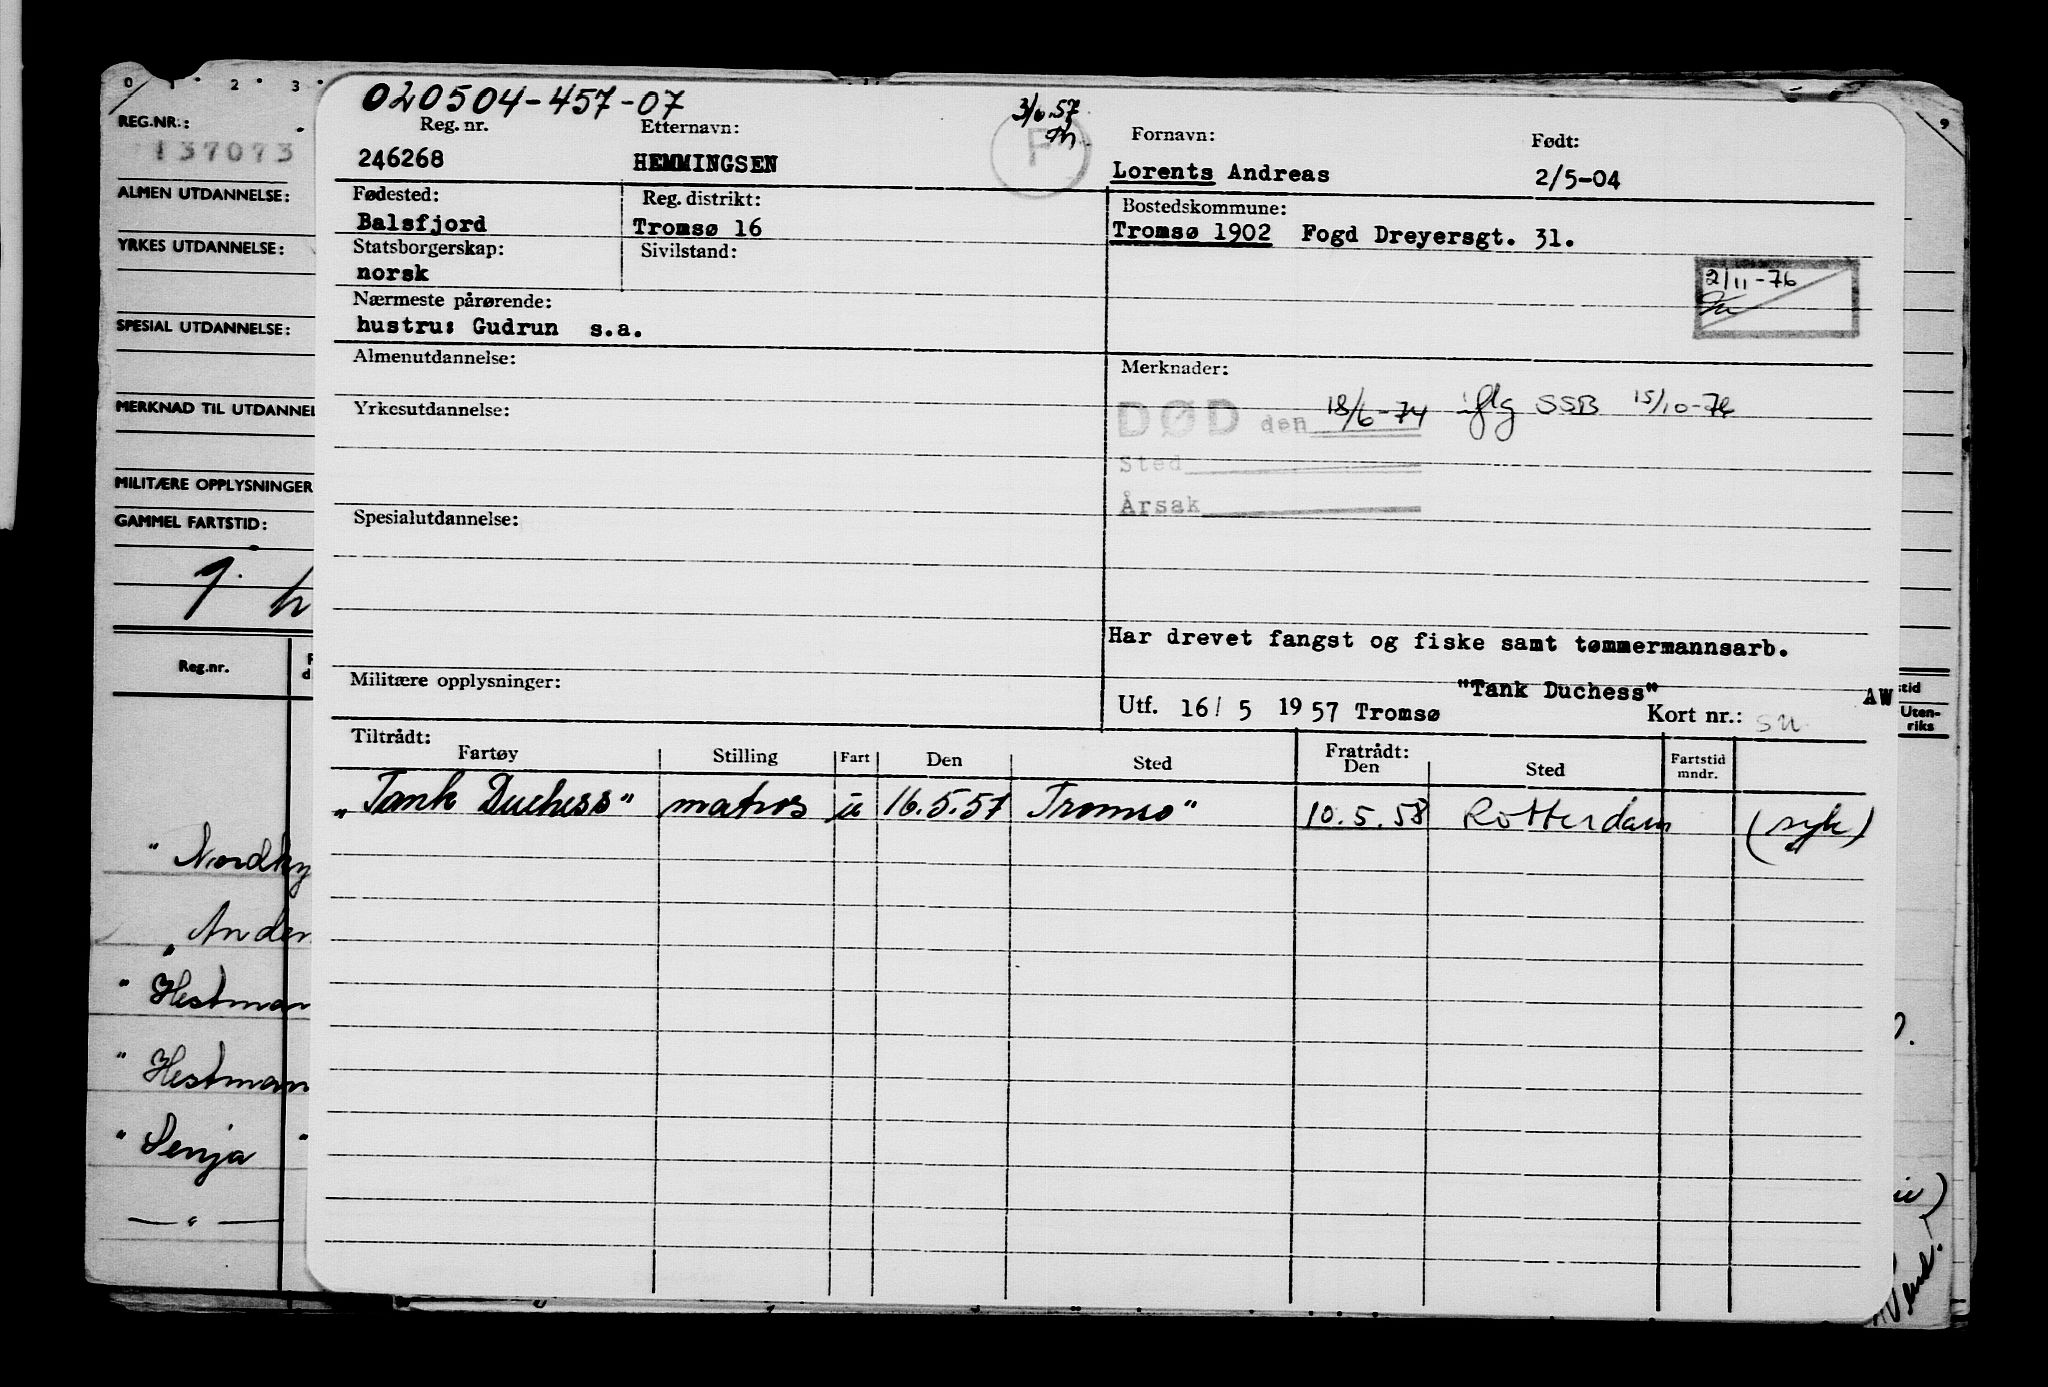 0 1 2 3 9
020504-457-07
3/6.57
REG.NR.: 137073
Reg. nr. Etternavn: F Fornavn: Født:
246268 HEMMINGSEN Lorents Andreas 2/5-04
ALMEN UTDANNELSE:
Fødested: Reg. distrikt: Bostedskommune:
Balsfjord Tromsø 16 Tromsø 1902 Fogd Dreyersgt. 31.
YRKES UTDANNELSE:
Statsborgerskap: Sivilstand:
norsk
2/11-76
Nærmeste pårørende:
SPESIAL UTDANNELSE:
hustru: Gudrun s.a.
Almenutdannelse: Merknader:
MERKNAD TIL UTDANNEL
Yrkesutdannelse:
DØD den 18/6-74 iflg SSB 15/10-76
Sted
MILITÆRE OPPLYSNINGER
Årsak
GAMMEL FARTSTID:
Spesialutdannelse:
Har drevet fangst og fiske samt tømmermannsarb.
Reg.nr.
Militære opplysninger:
"Tank Duchess" AW
Utf. 16/ 5 1957 Tromsø Kort nr.:
tid
Uten-
riks
Tiltrådt: Fratrådt:
Fartøy Stilling Fart Den Sted Den Sted Fartstid
mndr.
"Tank Duchess" matros u 16.5.57 Tromsø" 10.5.58 Rotterdam (syk)
" Nordky
" Ander
" Hestman
" Hestman
" Senja "
— " —